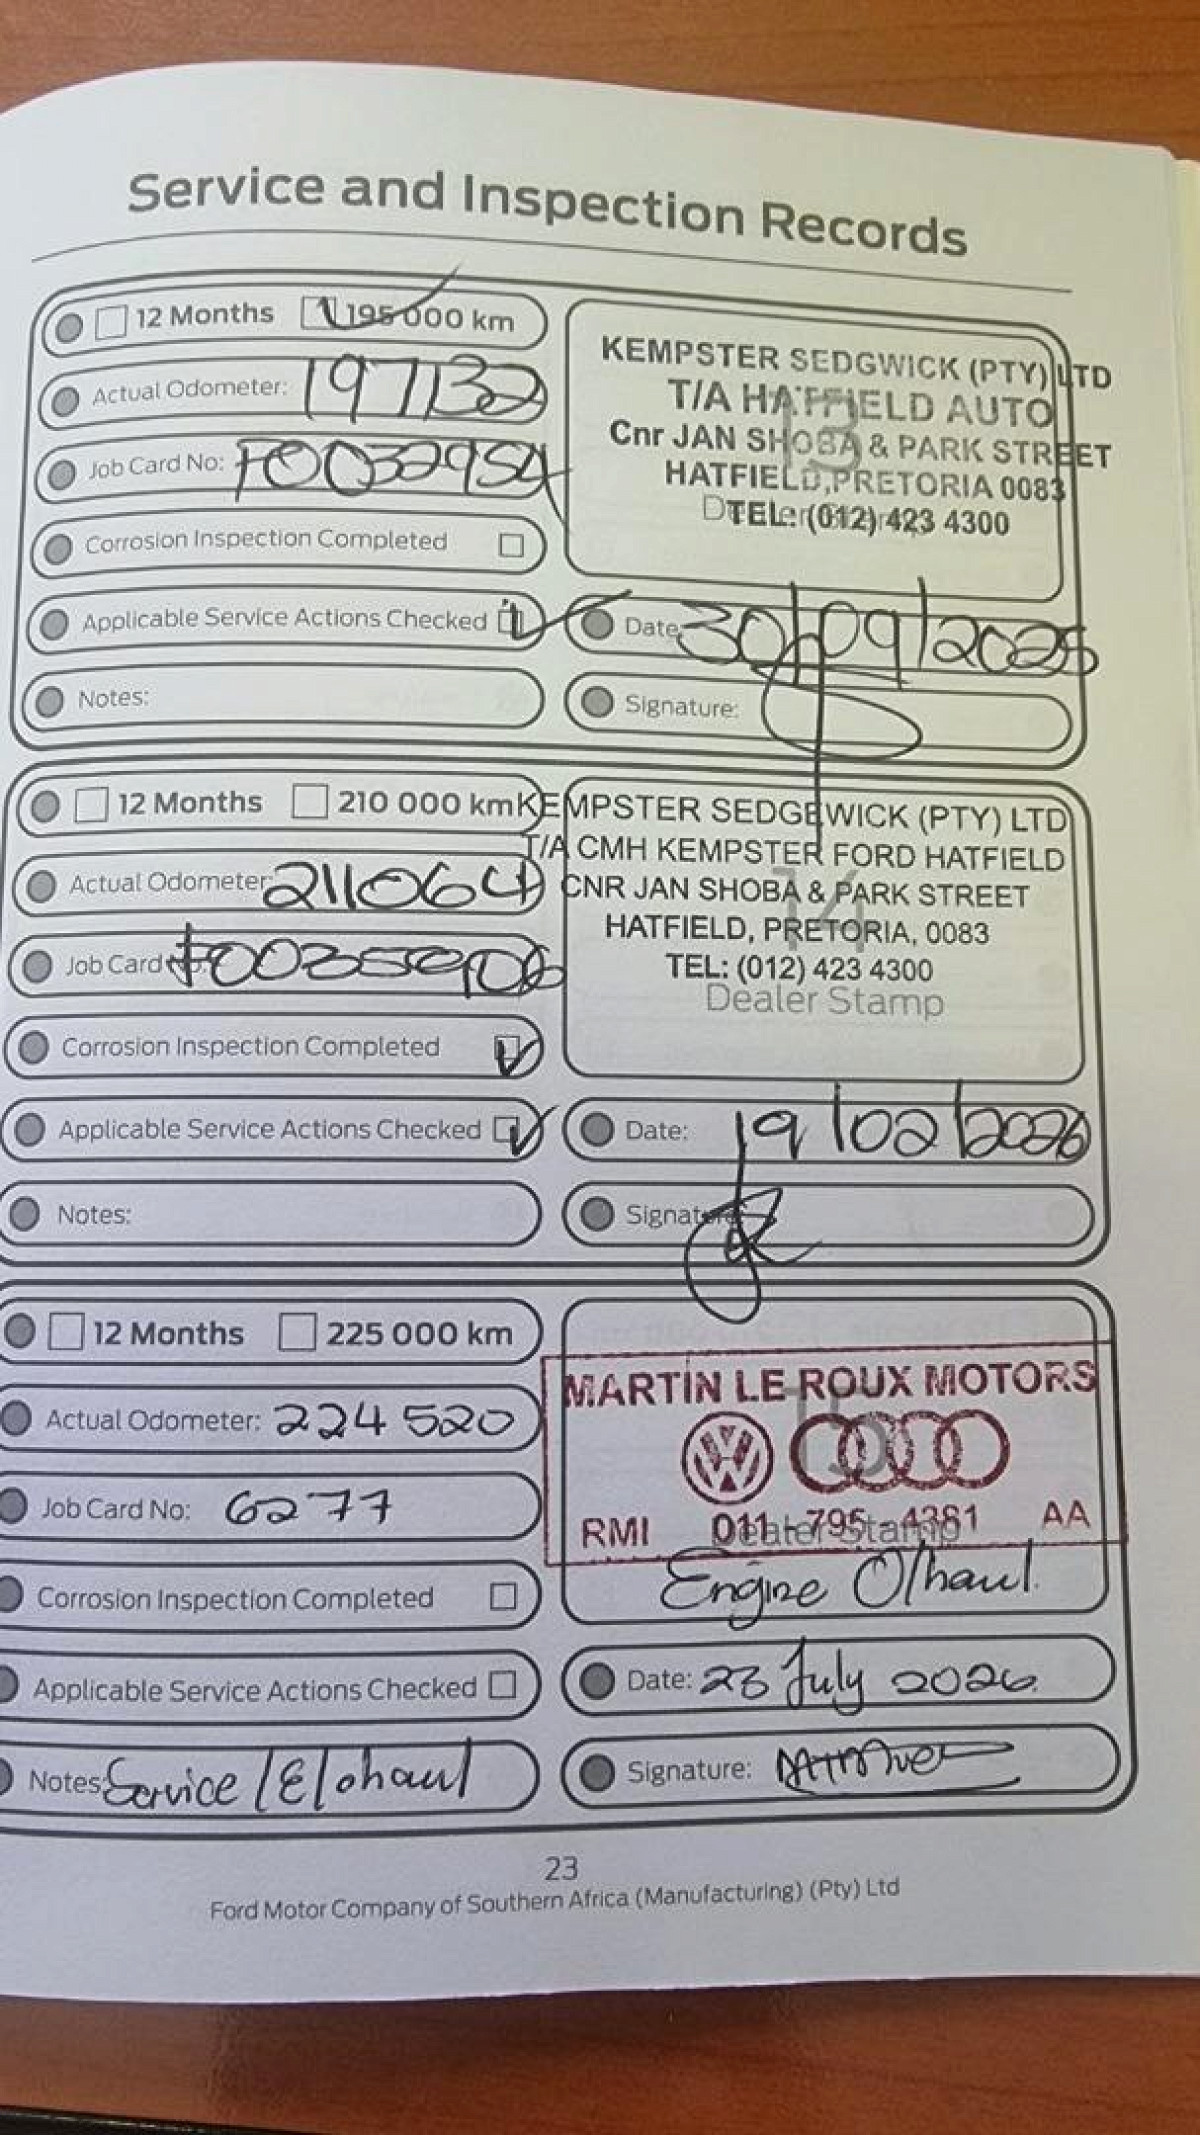 Service and Inspection Records
12 Months 195 000 km
Actual Odometer: 197132
Job Card No: F00032954
Corrosion Inspection Completed
Applicable Service Actions Checked
Notes:
KEMPSTER SEDGWICK (PTY) LTD
T/A HATFIELD AUTO
Cnr JAN SHOBA & PARK STREET
HATFIELD, PRETORIA 0083
TEL: (012) 423 4300
13
Dealer Stamp
Date: 30/09/2025
Signature:
12 Months 210 000 km
Actual Odometer: 211064
Job Card No:
Corrosion Inspection Completed
Applicable Service Actions Checked
Notes:
KEMPSTER SEDGEWICK (PTY) LTD
T/A CMH KEMPSTER FORD HATFIELD
CNR JAN SHOBA & PARK STREET
HATFIELD, PRETORIA, 0083
TEL: (012) 423 4300
14
Dealer Stamp
Date: 19/02/2026
Signature:
12 Months 225 000 km
Actual Odometer: 224 520
Job Card No: 6277
Corrosion Inspection Completed
Applicable Service Actions Checked
Notes: Service /E/ohaul
MARTIN LE ROUX MOTORS
15
RMI 011 - 795 - 4381 AA
Dealer Stamp
Engine O/haul.
Date: 23 July 2026.
Signature:
23
Ford Motor Company of Southern Africa (Manufacturing) (Pty) Ltd